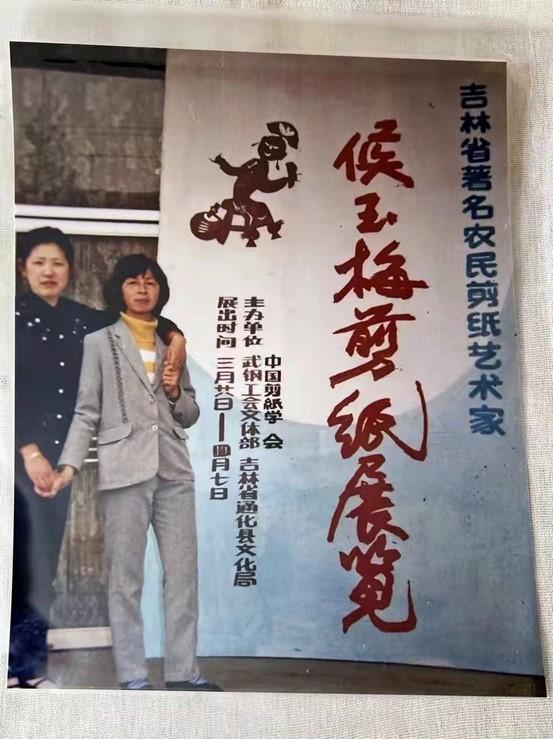 吉林省著名农民剪纸艺术家
候玉梅剪纸展览
中国剪紙学会
主办单位 武钢工会文体部 吉林省通化县文化局
展出时间 三月廿八日——四月七日